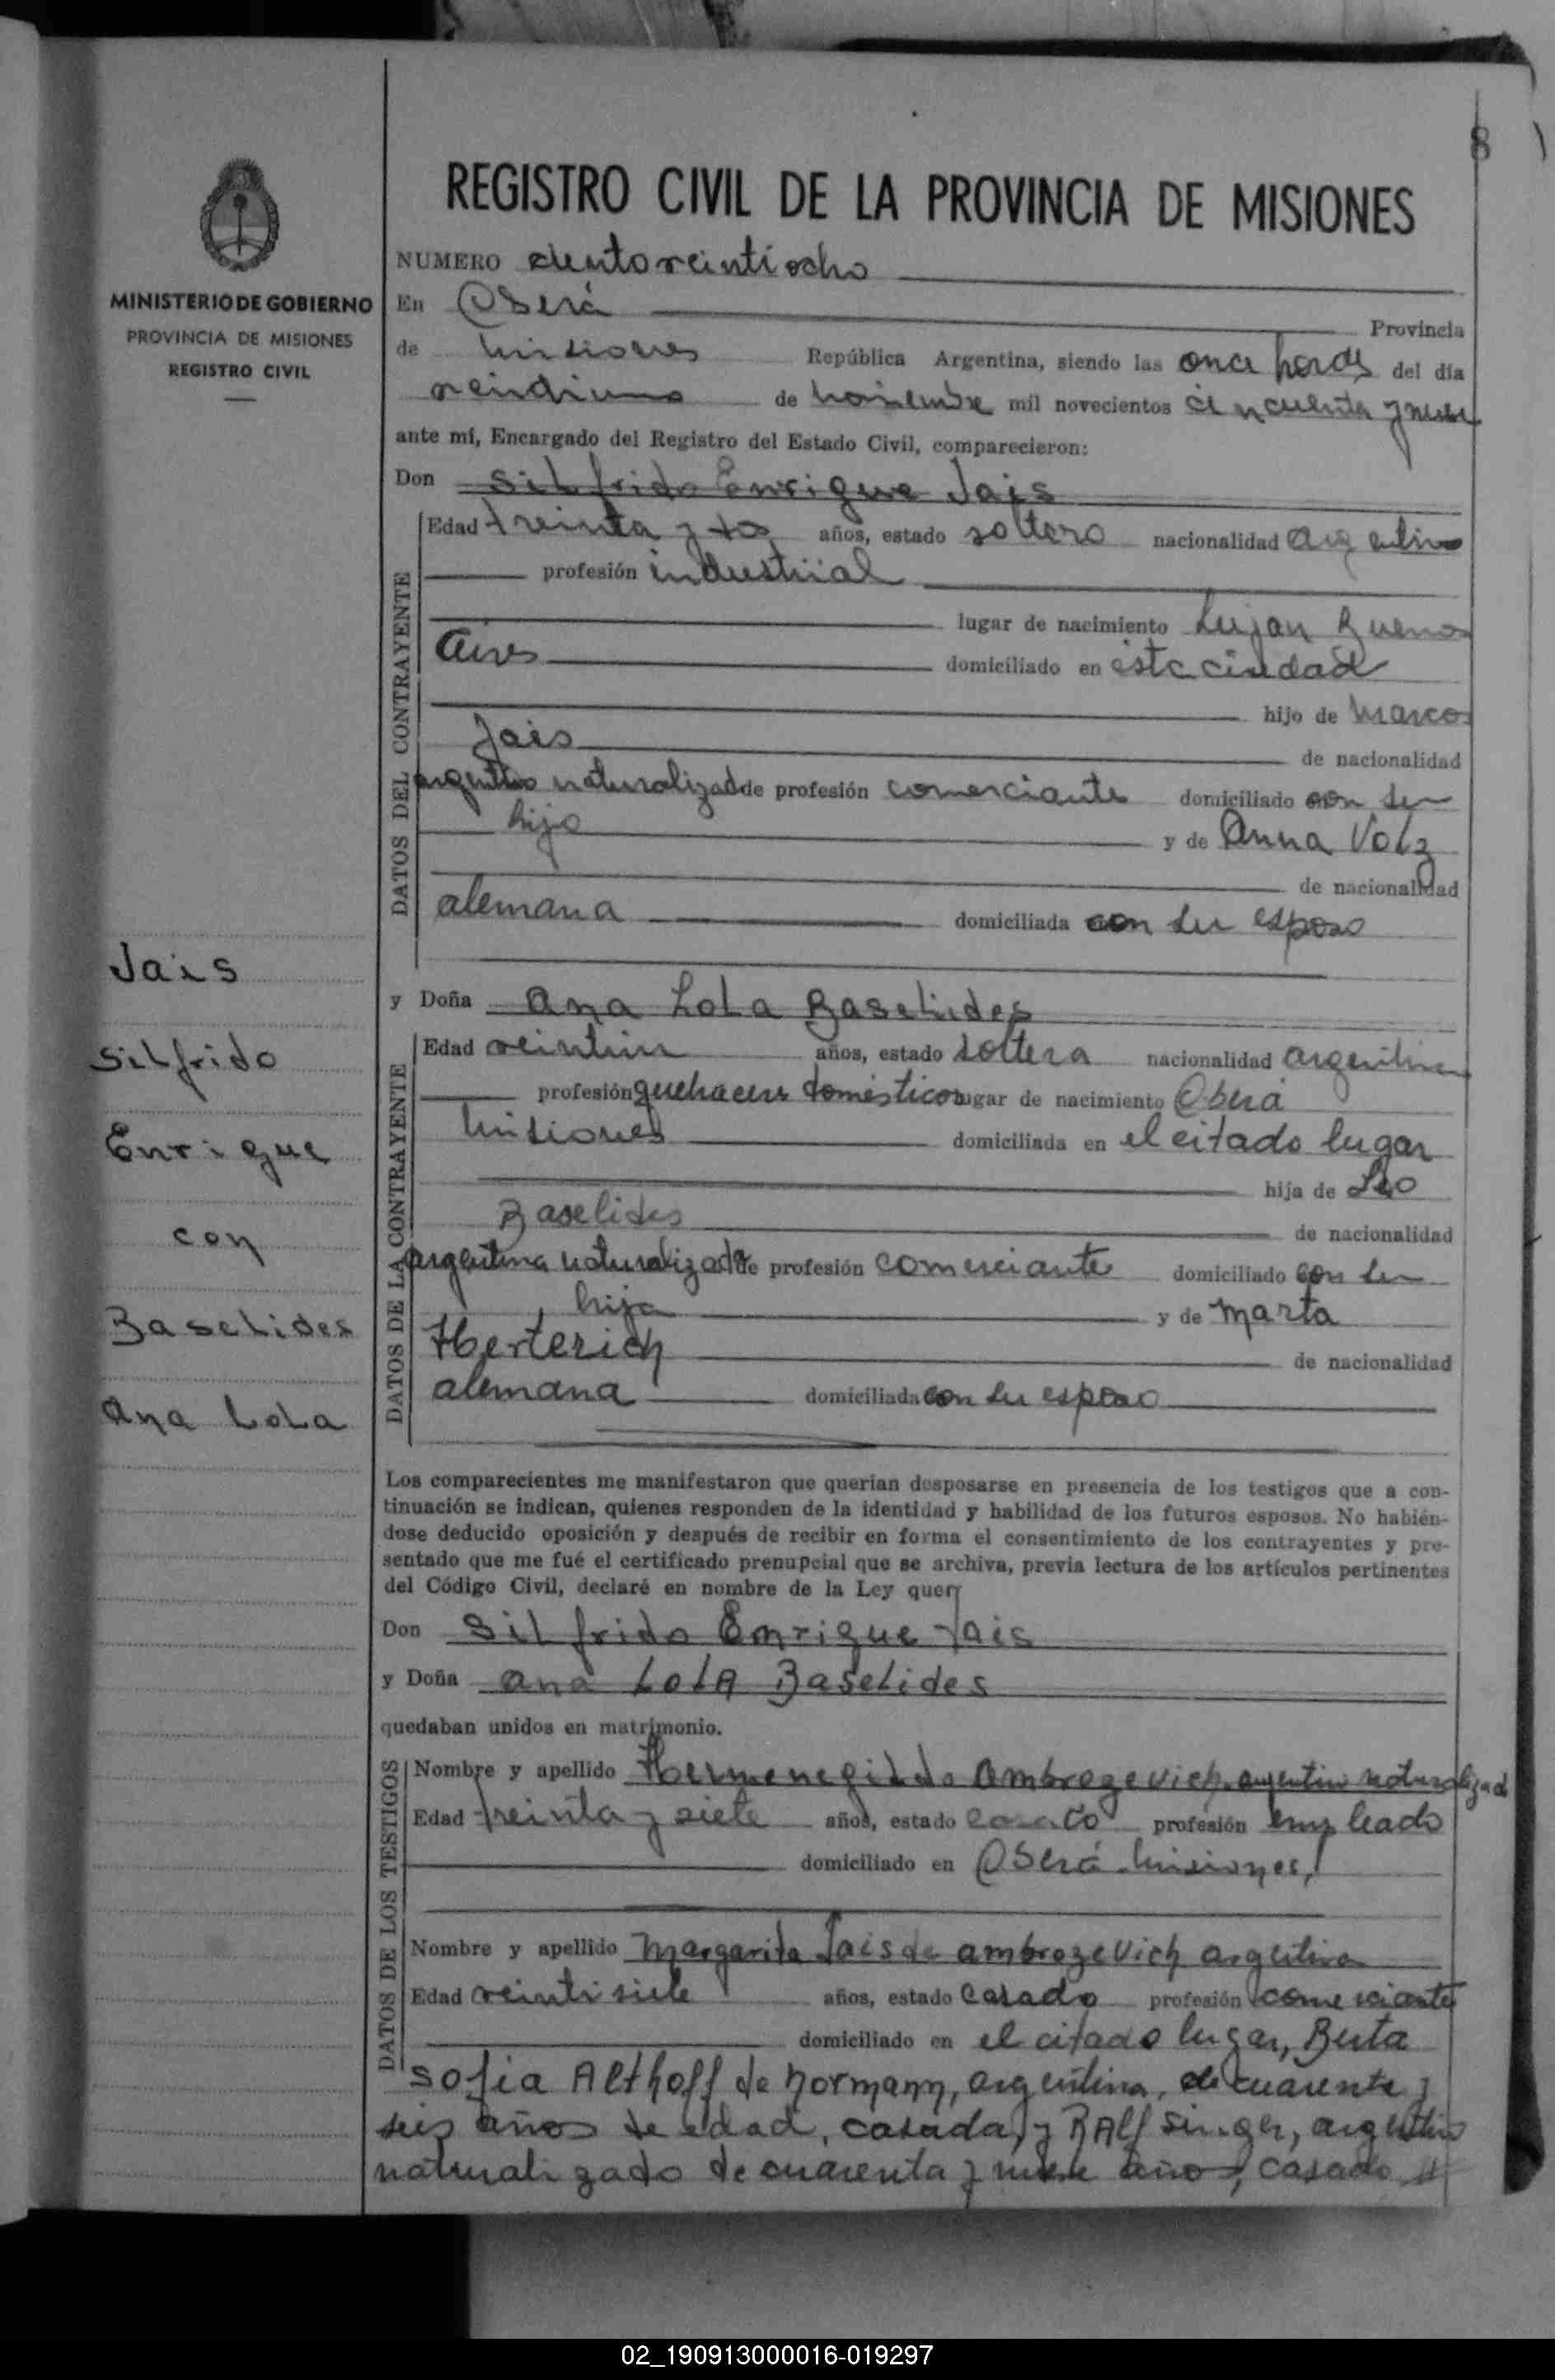 8
REGISTRO CIVIL DE LA PROVINCIA DE MISIONES
MINISTERIO DE GOBIERNO
PROVINCIA DE MISIONES
REGISTRO CIVIL
Jais
Silfrido
Enrique
con
Baselides
Ana Lola
NUMERO cientoveintiocho
En Oberá Provincia
de Misiones República Argentina, siendo las once horas del día
veindiuno de noviembre mil novecientos cincuenta y nueve
ante mí, Encargado del Registro del Estado Civil, comparecieron:
Don Silfrido Enrique Jais
DATOS DEL CONTRAYENTE
Edad treinta y dos años, estado soltero nacionalidad argentino
profesión industrial
lugar de nacimiento Lujan Buenos
Aires domiciliado en ésta ciudad
hijo de Marcos
Jais de nacionalidad
argentino naturalizado de profesión comerciante domiciliado con su
hijo y de Anna Volz
de nacionalidad
alemana domiciliada con su esposo
y Doña Ana Lola Baselides
DATOS DE LA CONTRAYENTE
Edad veintiun años, estado soltera nacionalidad argentina
profesión quehaceres domésticos lugar de nacimiento Oberá
Misiones domiciliada en el citado lugar
hija de Leo
Baselides de nacionalidad
argentina naturalizada de profesión comerciante domiciliado con su
hija y de Marta
Herterich de nacionalidad
alemana domiciliada con su esposo
Los comparecientes me manifestaron que querían desposarse en presencia de los testigos que a con-
tinuación se indican, quienes responden de la identidad y habilidad de los futuros esposos. No habién-
dose deducido oposición y después de recibir en forma el consentimiento de los contrayentes y pre-
sentado que me fué el certificado prenupcial que se archiva, previa lectura de los artículos pertinentes
del Código Civil, declaré en nombre de la Ley que:
Don Silfrido Enrique Jais
y Doña Ana Lola Baselides
quedaban unidos en matrimonio.
DATOS DE LOS TESTIGOS
Nombre y apellido Hermenegildo Ambrozevich, argentino naturalizado
Edad treinta y siete años, estado casado profesión empleado
domiciliado en Oberá Misiones,
Nombre y apellido Margarita Jais de Ambrozevich argentina
Edad veintisiete años, estado casado profesión comerciante
domiciliado en el citado lugar, Berta
Sofia Althoff de Normann, argentina, de cuarenta y
seis años de edad, casada, y Ralf Singer, argentino
naturalizado de cuarenta y nueve años, casado
02_190913000016-019297